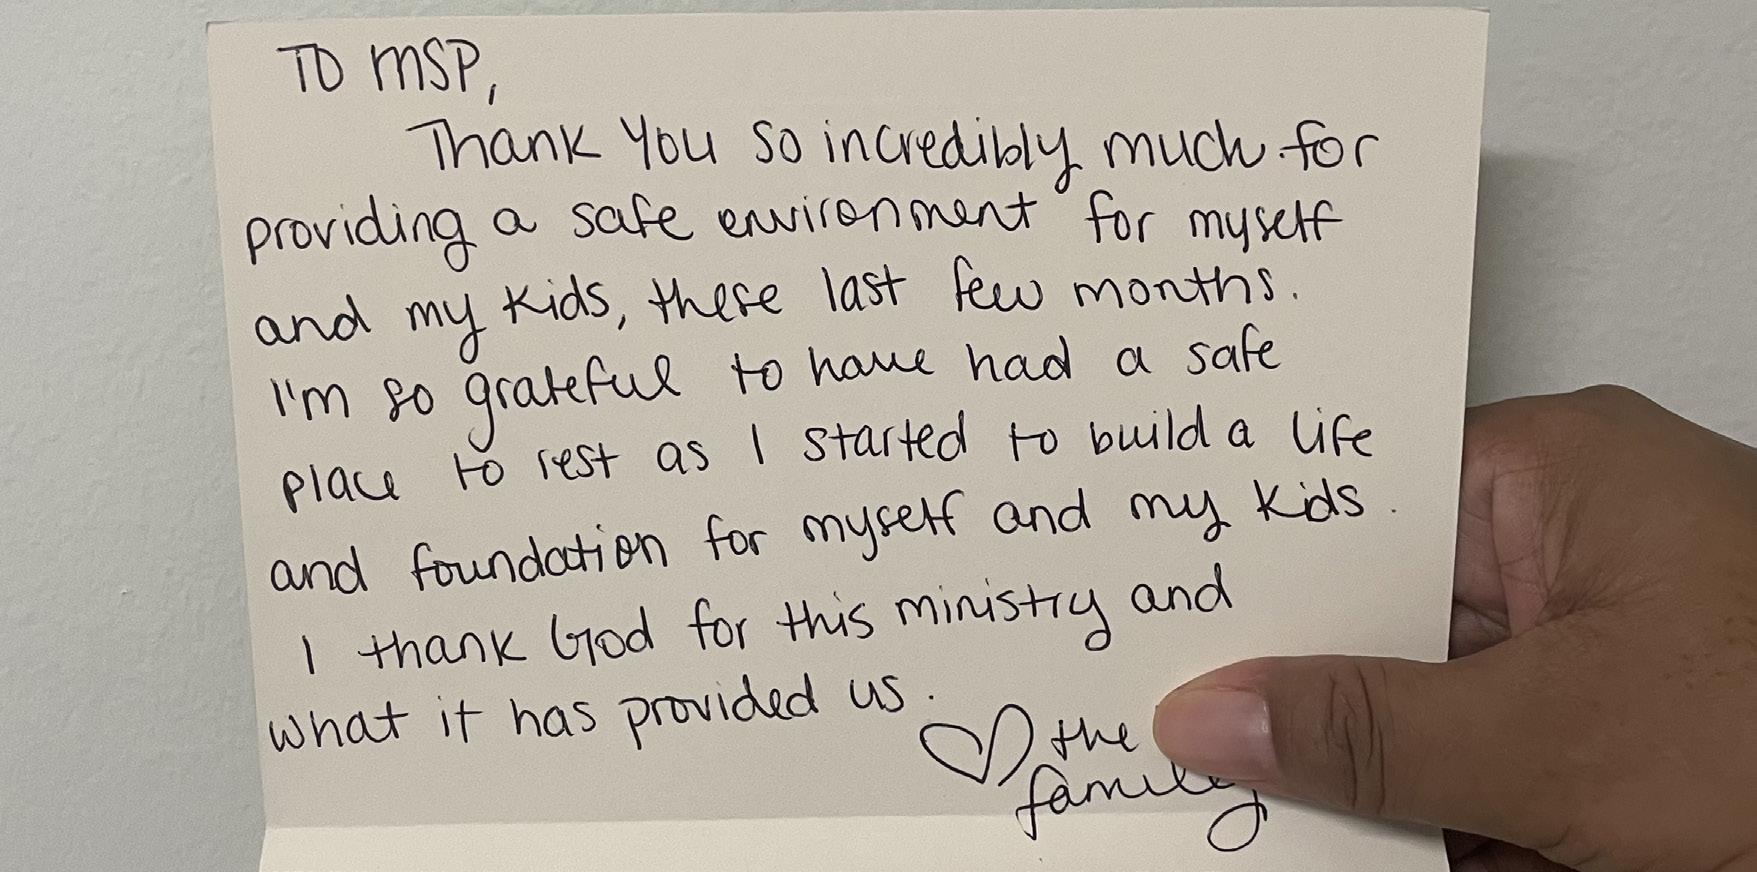 TO MSP,
Thank You so incredibly much for
providing a safe environment for myself
and my kids, these last few months.
I'm so grateful to have had a safe
place to rest as I started to build a life
and foundation for myself and my kids.
I thank God for this ministry and
what it has provided us.
♡ the
family